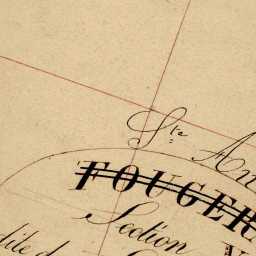 Ste An
FOUGER
Section
dite d